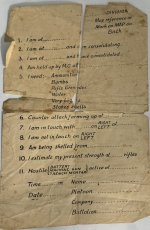 Map reference or
Mark on MAP on
Back
1. I am at
2. I am at ........ and am consolidating.
3. I am at ........ and have consolidated.
4. Am held up by M.G. at
5. I need :- Ammunition
Bombs
Rifle Grenades
Water
Very
Stokes shells
6. Counter attack forming up at
7. I am in touch with ........ RIGHT at
LEFT
8. I am not in touch on RIGHT
LEFT
9. Am being shelled from
10. I estimate my present strength at ........ rifles
11. Hostile BATTERY active at
MACHINE GUN
TRENCH MORTAR
Time ........ Name
Date ........ Platoon
Company
Battalion